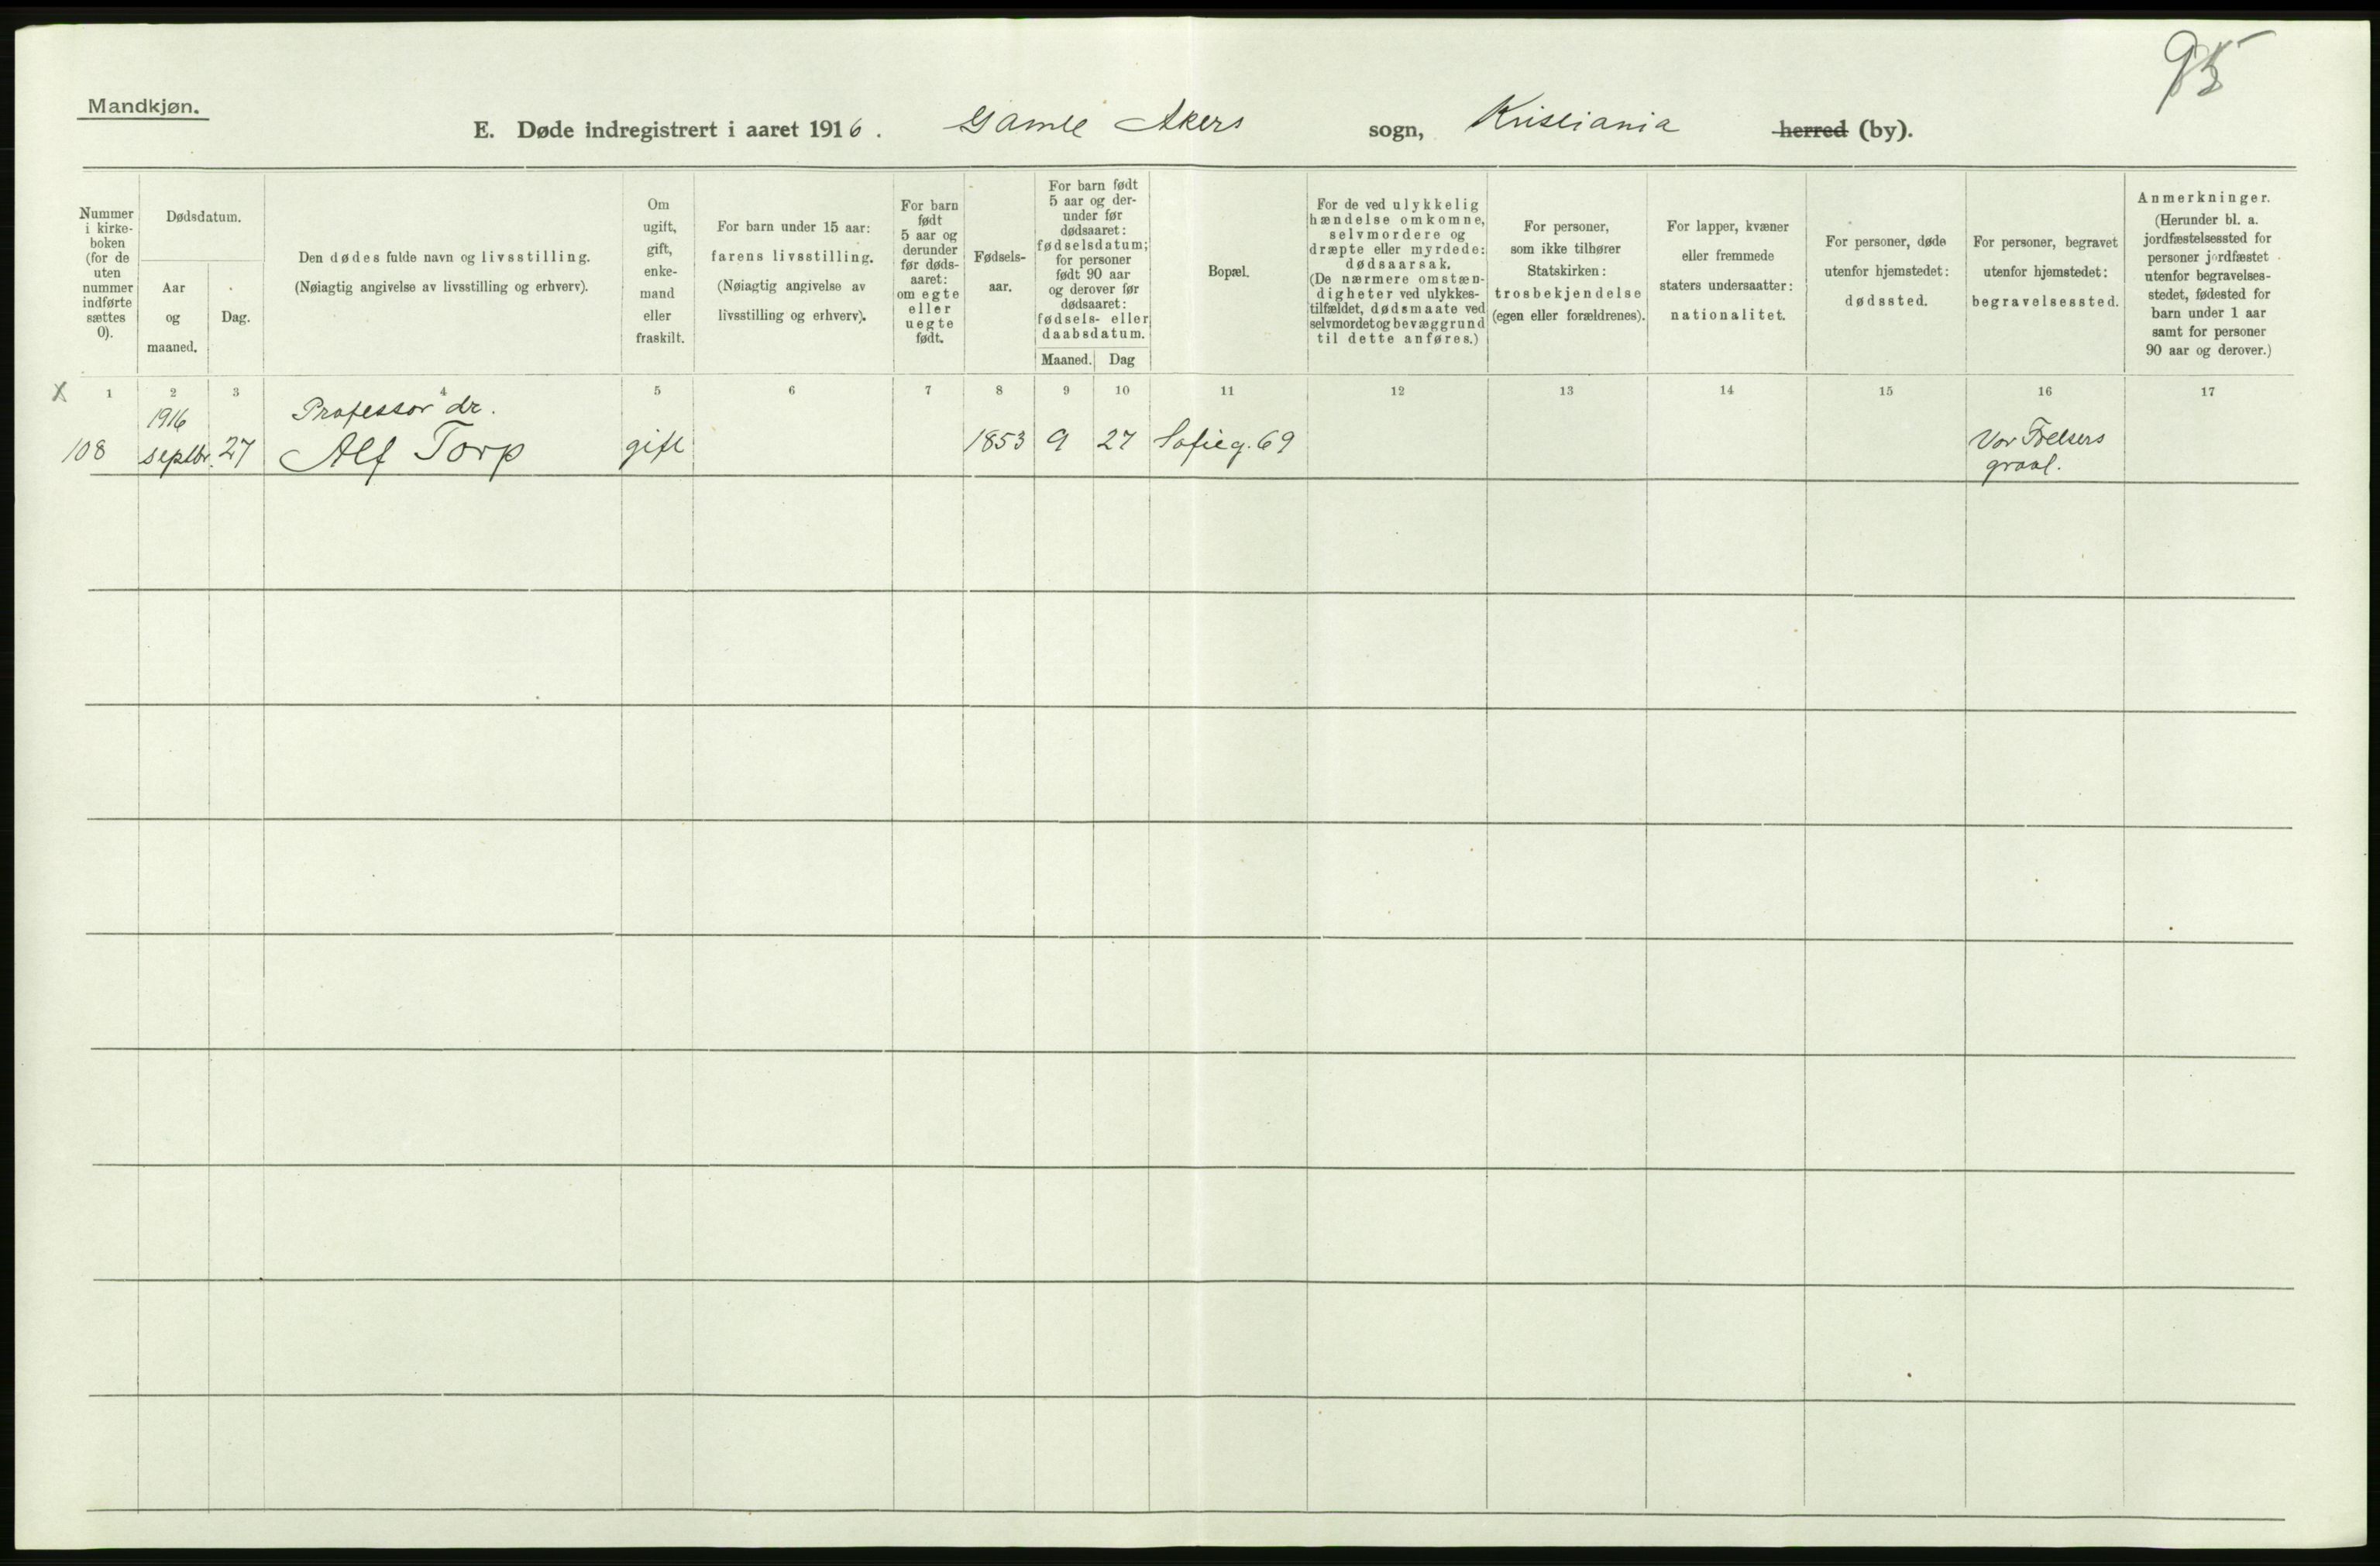 95
Mandkjøn.
E. Døde indregistrert i aaret 1916. Gamle Akers sogn, Kristiania herred (by).
Nummer
i kirke-
boken
(for de
uten
nummer
indførte
sættes
0).
Dødsdatum.
Aar
og
maaned.
Dag.
Den dødes fulde navn og livsstilling.
(Nøiagtig angivelse av livsstilling og erhverv).
Om
ugift,
gift,
enke-
mand
eller
fraskilt.
For barn under 15 aar:
farens livsstilling.
(Nøiagtig angivelse av
livsstilling og erhverv).
For barn
født
5 aar og
derunder
før døds-
aaret:
om egte
eller
uegte
født.
Fødsels-
aar.
For barn født
5 aar og der-
under før
dødsaaret:
fødselsdatum;
for personer
født 90 aar
og derover før
dødsaaret:
fødsels- eller
daabsdatum.
Maaned. Dag
Bopæl.
For de ved ulykkelig
hændelse omkomne,
selvmordere og
dræpte eller myrdede:
dødsaarsak.
(De nærmere omstæn-
digheter ved ulykkes-
tilfældet, dødsmaate ved
selvmordet og bevæggrund
til dette anføres.)
For personer,
som ikke tilhører
Statskirken:
trosbekjendelse
(egen eller forældrenes).
For lapper, kvæner
eller fremmede
staters undersaatter:
nationalitet.
For personer, døde
utenfor hjemstedet:
dødssted.
For personer, begravet
utenfor hjemstedet:
begravelsessted.
Anmerkninger.
(Herunder bl. a.
jordfæstelsessted for
personer jordfæstet
utenfor begravelses-
stedet, fødested for
barn under 1 aar
samt for personer
90 aar og derover.)
X 1 2 3 4 5 6 7 8 9 10 11 12 13 14 15 16 17
1916 Professor dr.
108 septbr. 27 Alf Torp gift 1853 9 27 Sofieg. 69 Vor Frelsers
gravl.